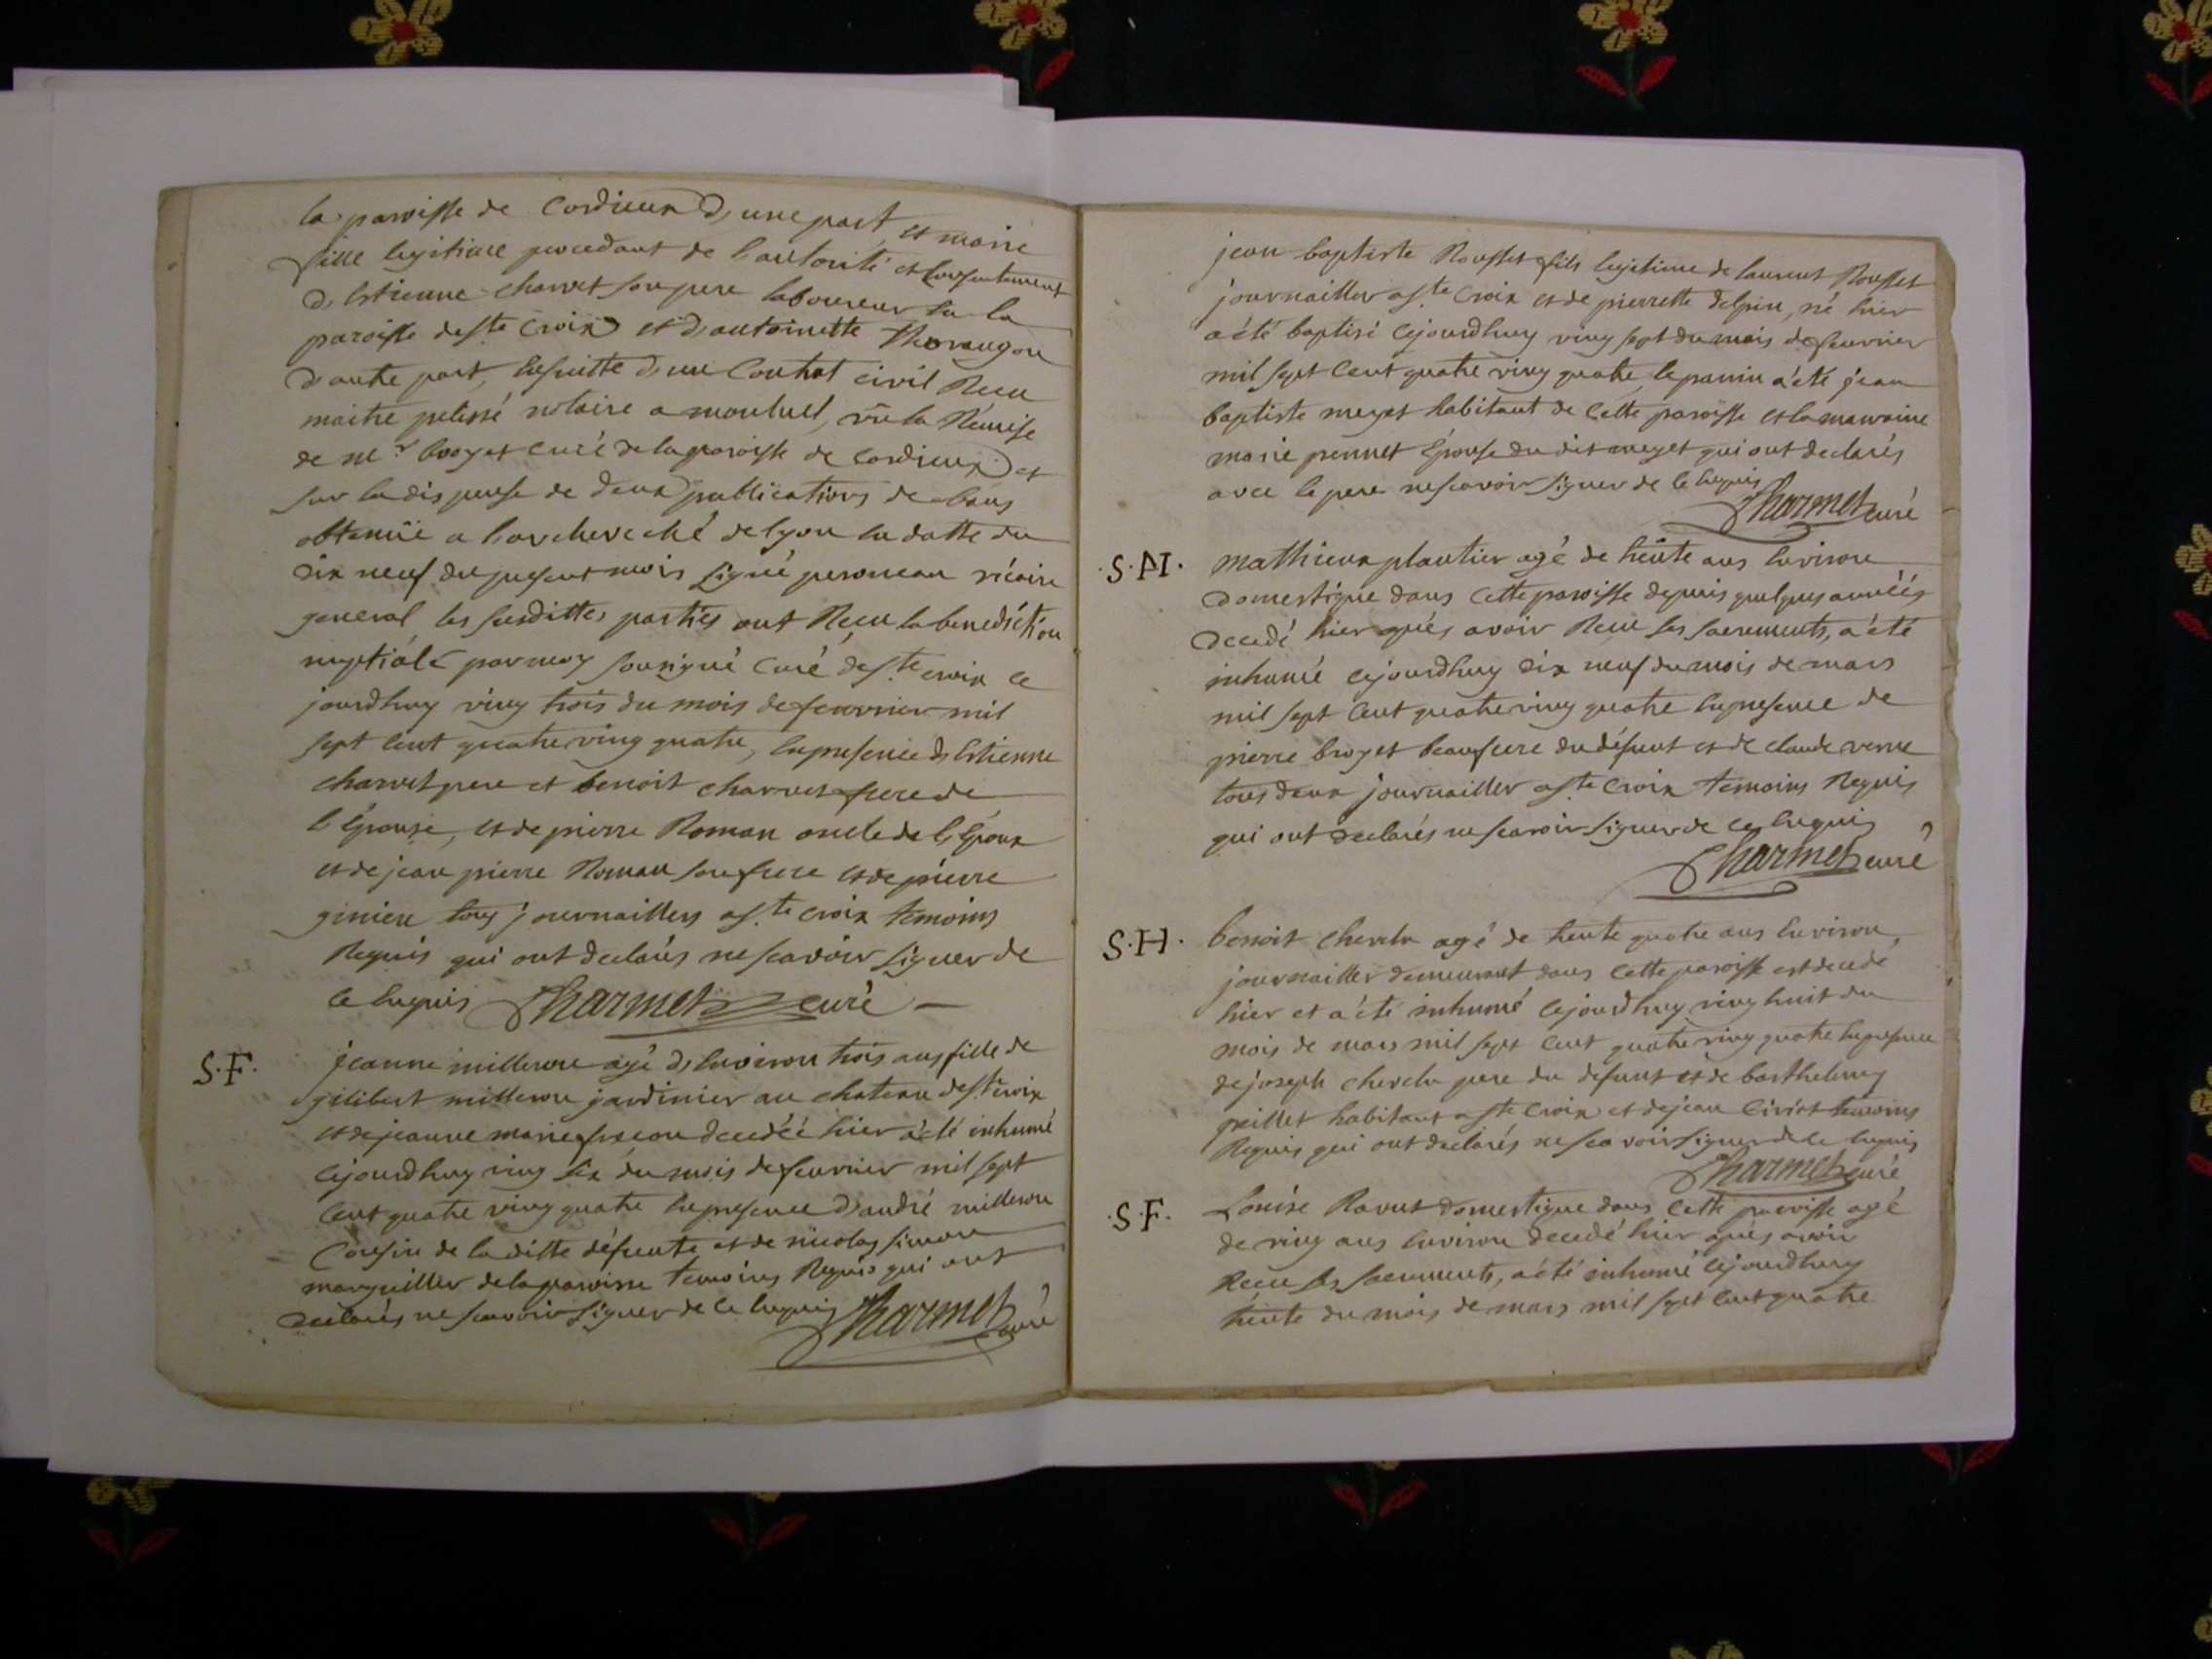 la paroisse de Cordieux d'une part et marie
fille legitime procedant de l'autorité et consentement
d'Estienne charvet son pere laboureur en la
paroisse de ste Croix et d'antoinette
d'autre part, ensuitte d'un Contrat civil Receu
maitre pelissé notaire a montluel, vû la Remise
de mr broyet curé de la paroisse de Cordieux et
sur la dispense de deux publications de bans
obtenüe a l'archeveché de lyon en datte du
dix neuf du present mois signé vicaire
general les susdittes parties ont Receu la benediction
nuptiale par moy sousigné Curé de ste croix ce
jourdhuy ving trois du mois de feuvrier mil
sept cent quatre ving quatre, en presence d'Estienne
charvet pere et benoit charvet frere de
l'Epouse, et de pierre Roman oncle de l'Epoux
et de jean pierre Roman son frere et de pierre
giniere tous journaillers a ste croix temoins
Requis qui ont declarés ne scavoir signer de
ce Enquis Charmet curé
S.F. jeanne milleron agé d'environ trois ans fille de
gilibert milleron jardinier au chateau de ste croix
et de jeanne marie decedéé hier a été inhumé
cejourdhuy ving six du mois de feuvrier mil sept
cent quatre ving quatre en presence d'andré milleron
Cousin de la ditte défunte et de nicolas simon
marguillier de la paroisse temoins Requis qui ont
declarés ne scavoir signer de ce enquis Charmet curé
jean baptiste Rousset fils legitime de laurent Rousset
journailler a ste Croix et de pierrette delpin, né hier
a été baptisé cejourdhuy ving sept du mois de feuvrier
mil sept cent quatre ving quatre, le parrin a été jean
baptiste meyet habitant de cette paroisse et la marraine
marie pennet Épouse du dit meyet qui ont declarés
avec le pere ne scavoir signer de ce Enquis
Charmet curé
S.M. mathieux plantier agé de trente ans Environ
domestique dans cette paroisse depuis quelques annéés
decedé hier après avoir Receu ses sacrements, a été
inhumé cejourdhuy dix neuf du mois de mars
mil sept cent quatre ving quatre en presence de
pierre broyet beaufrere du défunt et de claude verne
tous deux journailler a ste Croix temoins Requis
qui ont declarés ne scavoir signer de ce Enquis
Charmet curé
S.H. benoit agé de trente quatre ans Environ,
journailler demeurant dans cette paroisse est decedé
hier et a été inhumé cejourdhuy ving huit du
mois de mars mil sept cent quatre ving quatre en presence
de joseph pere du defunt et de barthelemy
peillet habitant a ste Croix et de jean temoins
Requis qui ont declarés ne scavoir signer de ce enquis
Charmet curé
S.F. Louise Ravut domestique dans cette paroisse agé
de ving ans Environ decedé hier après avoir
Receu ses sacrements, a été inhumé cejourdhuy
trente du mois de mars mil sept cent quatre